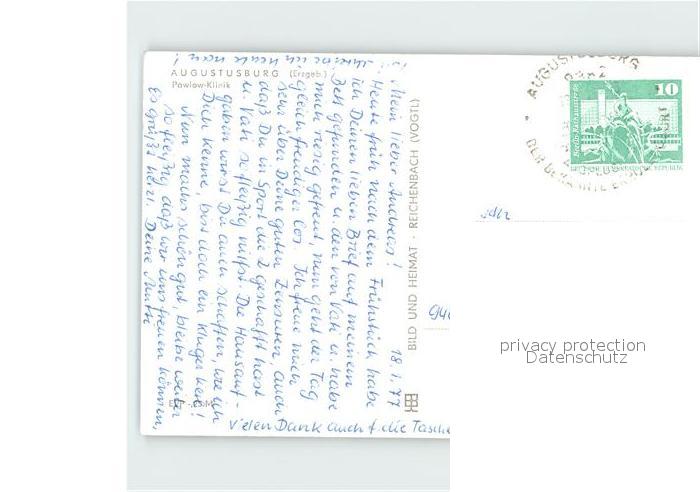 AUGUSTUSBURG (Erzgeb.)
Pawlow-Klinik
18.1.77
Mein lieber Andreas!
Heute früh nach dem Frühstück habe
ich Deinen lieben Brief auf meinem
Bett gefunden u. den von Vati u. habe
mich riesig gefreut, nun geht der Tag
gleich freudiger los. Ich freue mich
sehr über Deine guten Zensuren, auch
daß Du in Sport die 2 geschafft hast
u. Vati so fleißig hilfst. Die Hausauf-
gaben wirst Du auch schaffen, wie ich
Dich kenne, bist doch ein kluger Kerl!
Nun machs schön gut, bleibe weiter
so fleißig, daß wir uns freuen können,
Es grüßt herzl. Deine Mutti
Vielen Dank auch f. die Tasche
BILD UND HEIMAT · REICHENBACH (VOGTL)
AUGUSTUSBURG
10
DEUTSCHE DEMOKRATISCHE REPUBLIK
privacy protection
Datenschutz